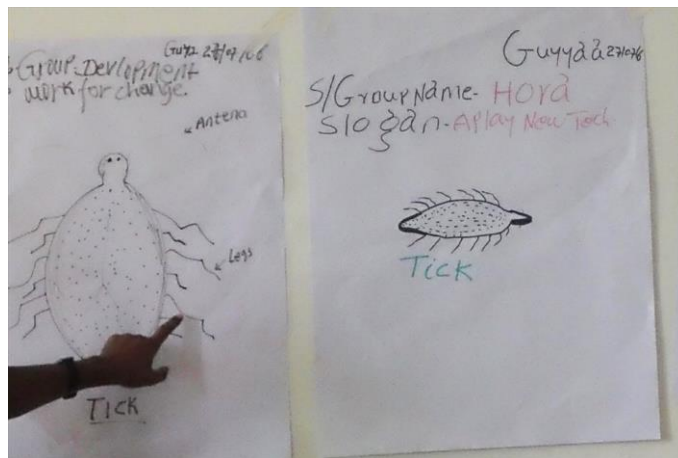 Guyz 27/07/06
Group Devlopment
work for change
Antena
Legs
TICK
Guyyaa 27/07/6
S/Group Name- Hora
Slogan- Aplay New Tech
Tick